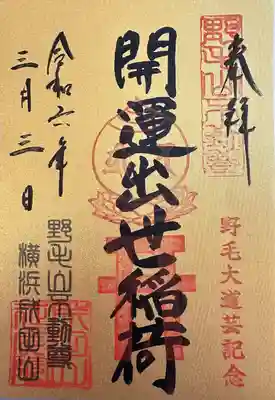 奉拝
野毛山不動尊
野毛大道芸記念
開運出世稲荷
令和六年
三月三日
野毛山不動尊
横浜成田山